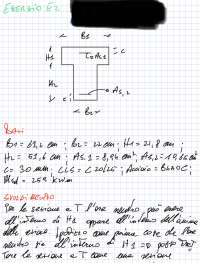 ESERCIZIO E2
B1
H1
TORAS1
C
H2
C
AS,2
B2
DATI
B1 = 61,2 cm ; B2 = 22 cm ; H1 = 21,8 cm ;
H2 = 51,6 cm ; AS,1 = 8,04 cm² ; AS,2 =
C = 30 mm ; CLS = C20/25 ; Acciaio = B450C ;
MSd = 259 kNm
SVOLGIMENTO
Per le sezioni a T l'asse neutro può essere
all'interno di H1 oppure all'interno dell'anima
della sezione. Ipotizzo come prima cosa che l'asse
neutro sia all'interno di H1 => posso trat-
tare la sezione a T come una sezione